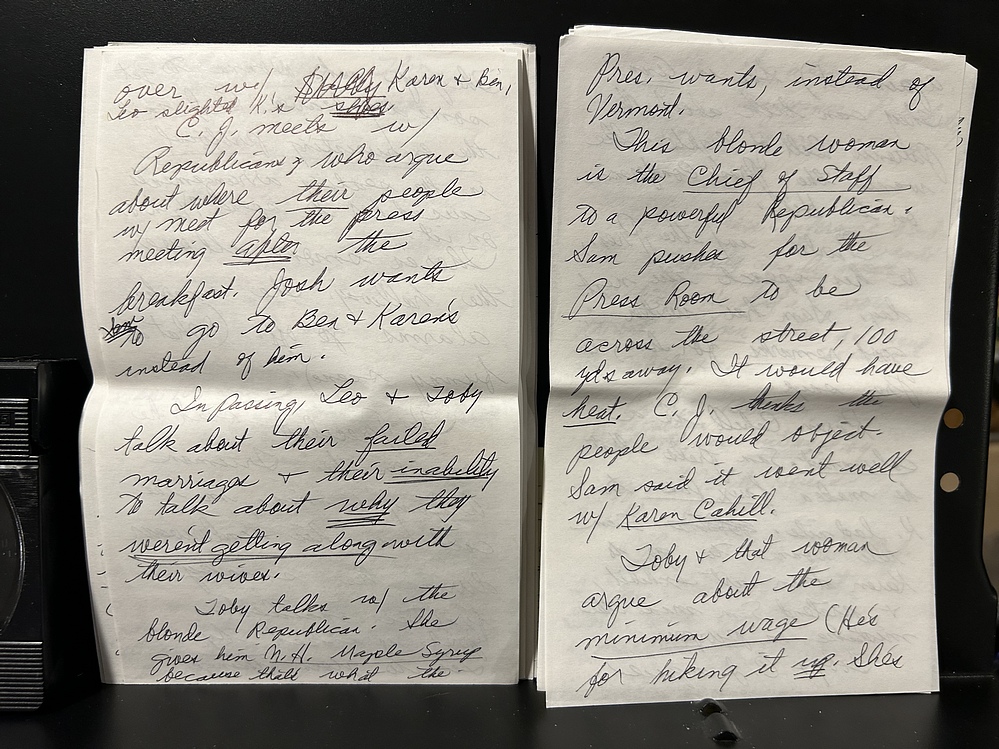 over w/ Karen & Ben,
Leo slighted K.'s shoes.
C. J. meets w/
Republicans who argue
about where their people
w/ meet for the press
meeting after the
breakfast. Josh wants
to go to Ben & Karen's
instead of him.
In pacing, Leo & Toby
talk about their failed
marriages & their inability
to talk about why they
weren't getting along with
their wives.
Toby talks w/ the
blonde Republican. She
gives him N.H. Maple Syrup
because that's what the
Pres. wants, instead of
Vermont.
This blonde woman
is the Chief of Staff
to a powerful Republican.
Sam pushes for the
Press Room to be
across the street, 100
yds away. It would have
heat. C. J. thinks the
people would object.
Sam said it went well
w/ Karen Cahill.
Toby & that woman
argue about the
minimum wage (He's
for hiking it up. She's